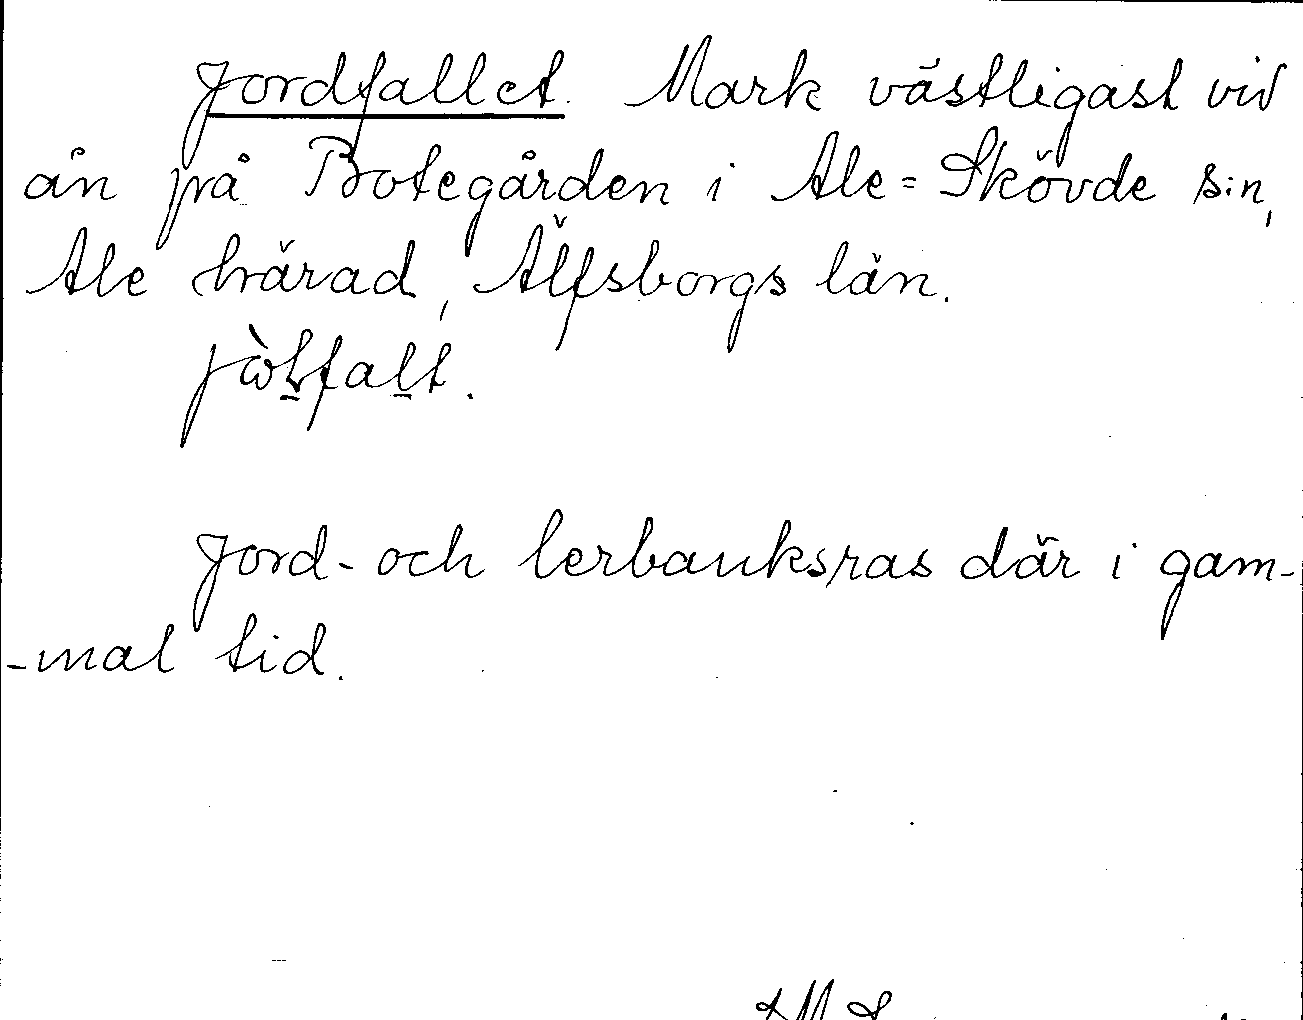 Jordfallet. Mark västligast vid
ån på Botegården i Ale=Skövde s:n,
Ale härad, Älfsborgs län.
Jord- och lerbanksras där i gam-
-mal tid.